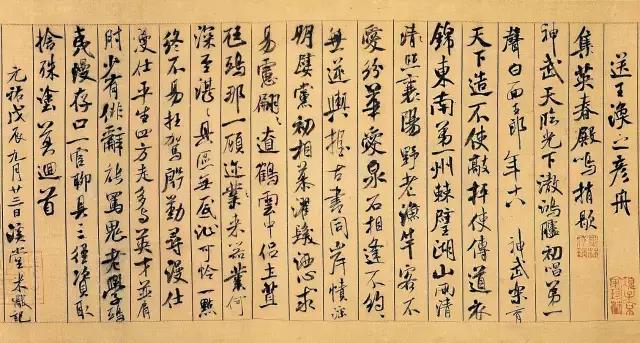 送王渙之彥舟
集英春殿鳴捎歇
神武天臨光下澈鴻臚初唱第一
聲白面玉郎年十八神武樂育
天下造不使敲抨使傳道衣
錦東南第一州棘璧湖山兩清
照襄陽野老漁竿客不
愛紛華愛泉石相逢不約々
無逆輿握古書同岸幘淫
朋嬖黨初相慕濯髮灑心求
易慮翩々遼鶴雲中侶土苴
尪鴟那一顧邇來器業何
深至湛々具區無底沚可憐一點
終不易枉駕殷勤尋漫仕
漫仕平生四方走多與英才並肩
肘少有俳辭能罵鬼老學鴟
夷漫存口一官聊具三徑資取
捨殊塗莫迴首
元祐戊辰九月廿三日溪堂米黻記